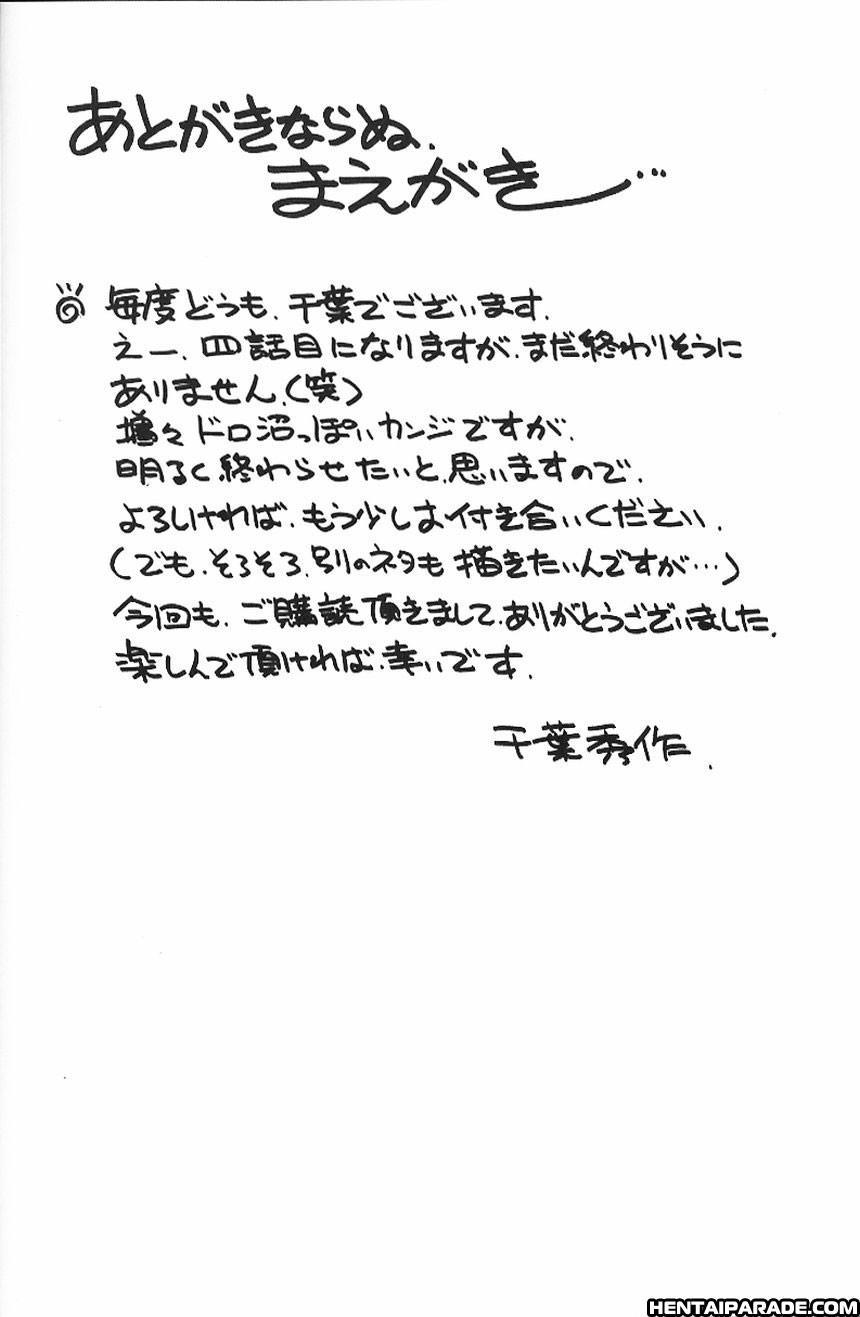 あとがきならぬ、
まえがき…
毎度どうも、千葉でございます、
えー、四話目になりますが、まだ終わりそうに
ありません、(笑)
増々ドロ沼っぽいカンジですが、
明るく終わらせたいと、思いますので、
よろしければ、もう少しお付き合いください、
(でも、そろそろ、別のネタも描きたいんですが…)
今回も、ご購読頂きまして、ありがとうございました、
楽しんで頂ければ、幸いです、
千葉秀作、
HENTAIPARADE.COM